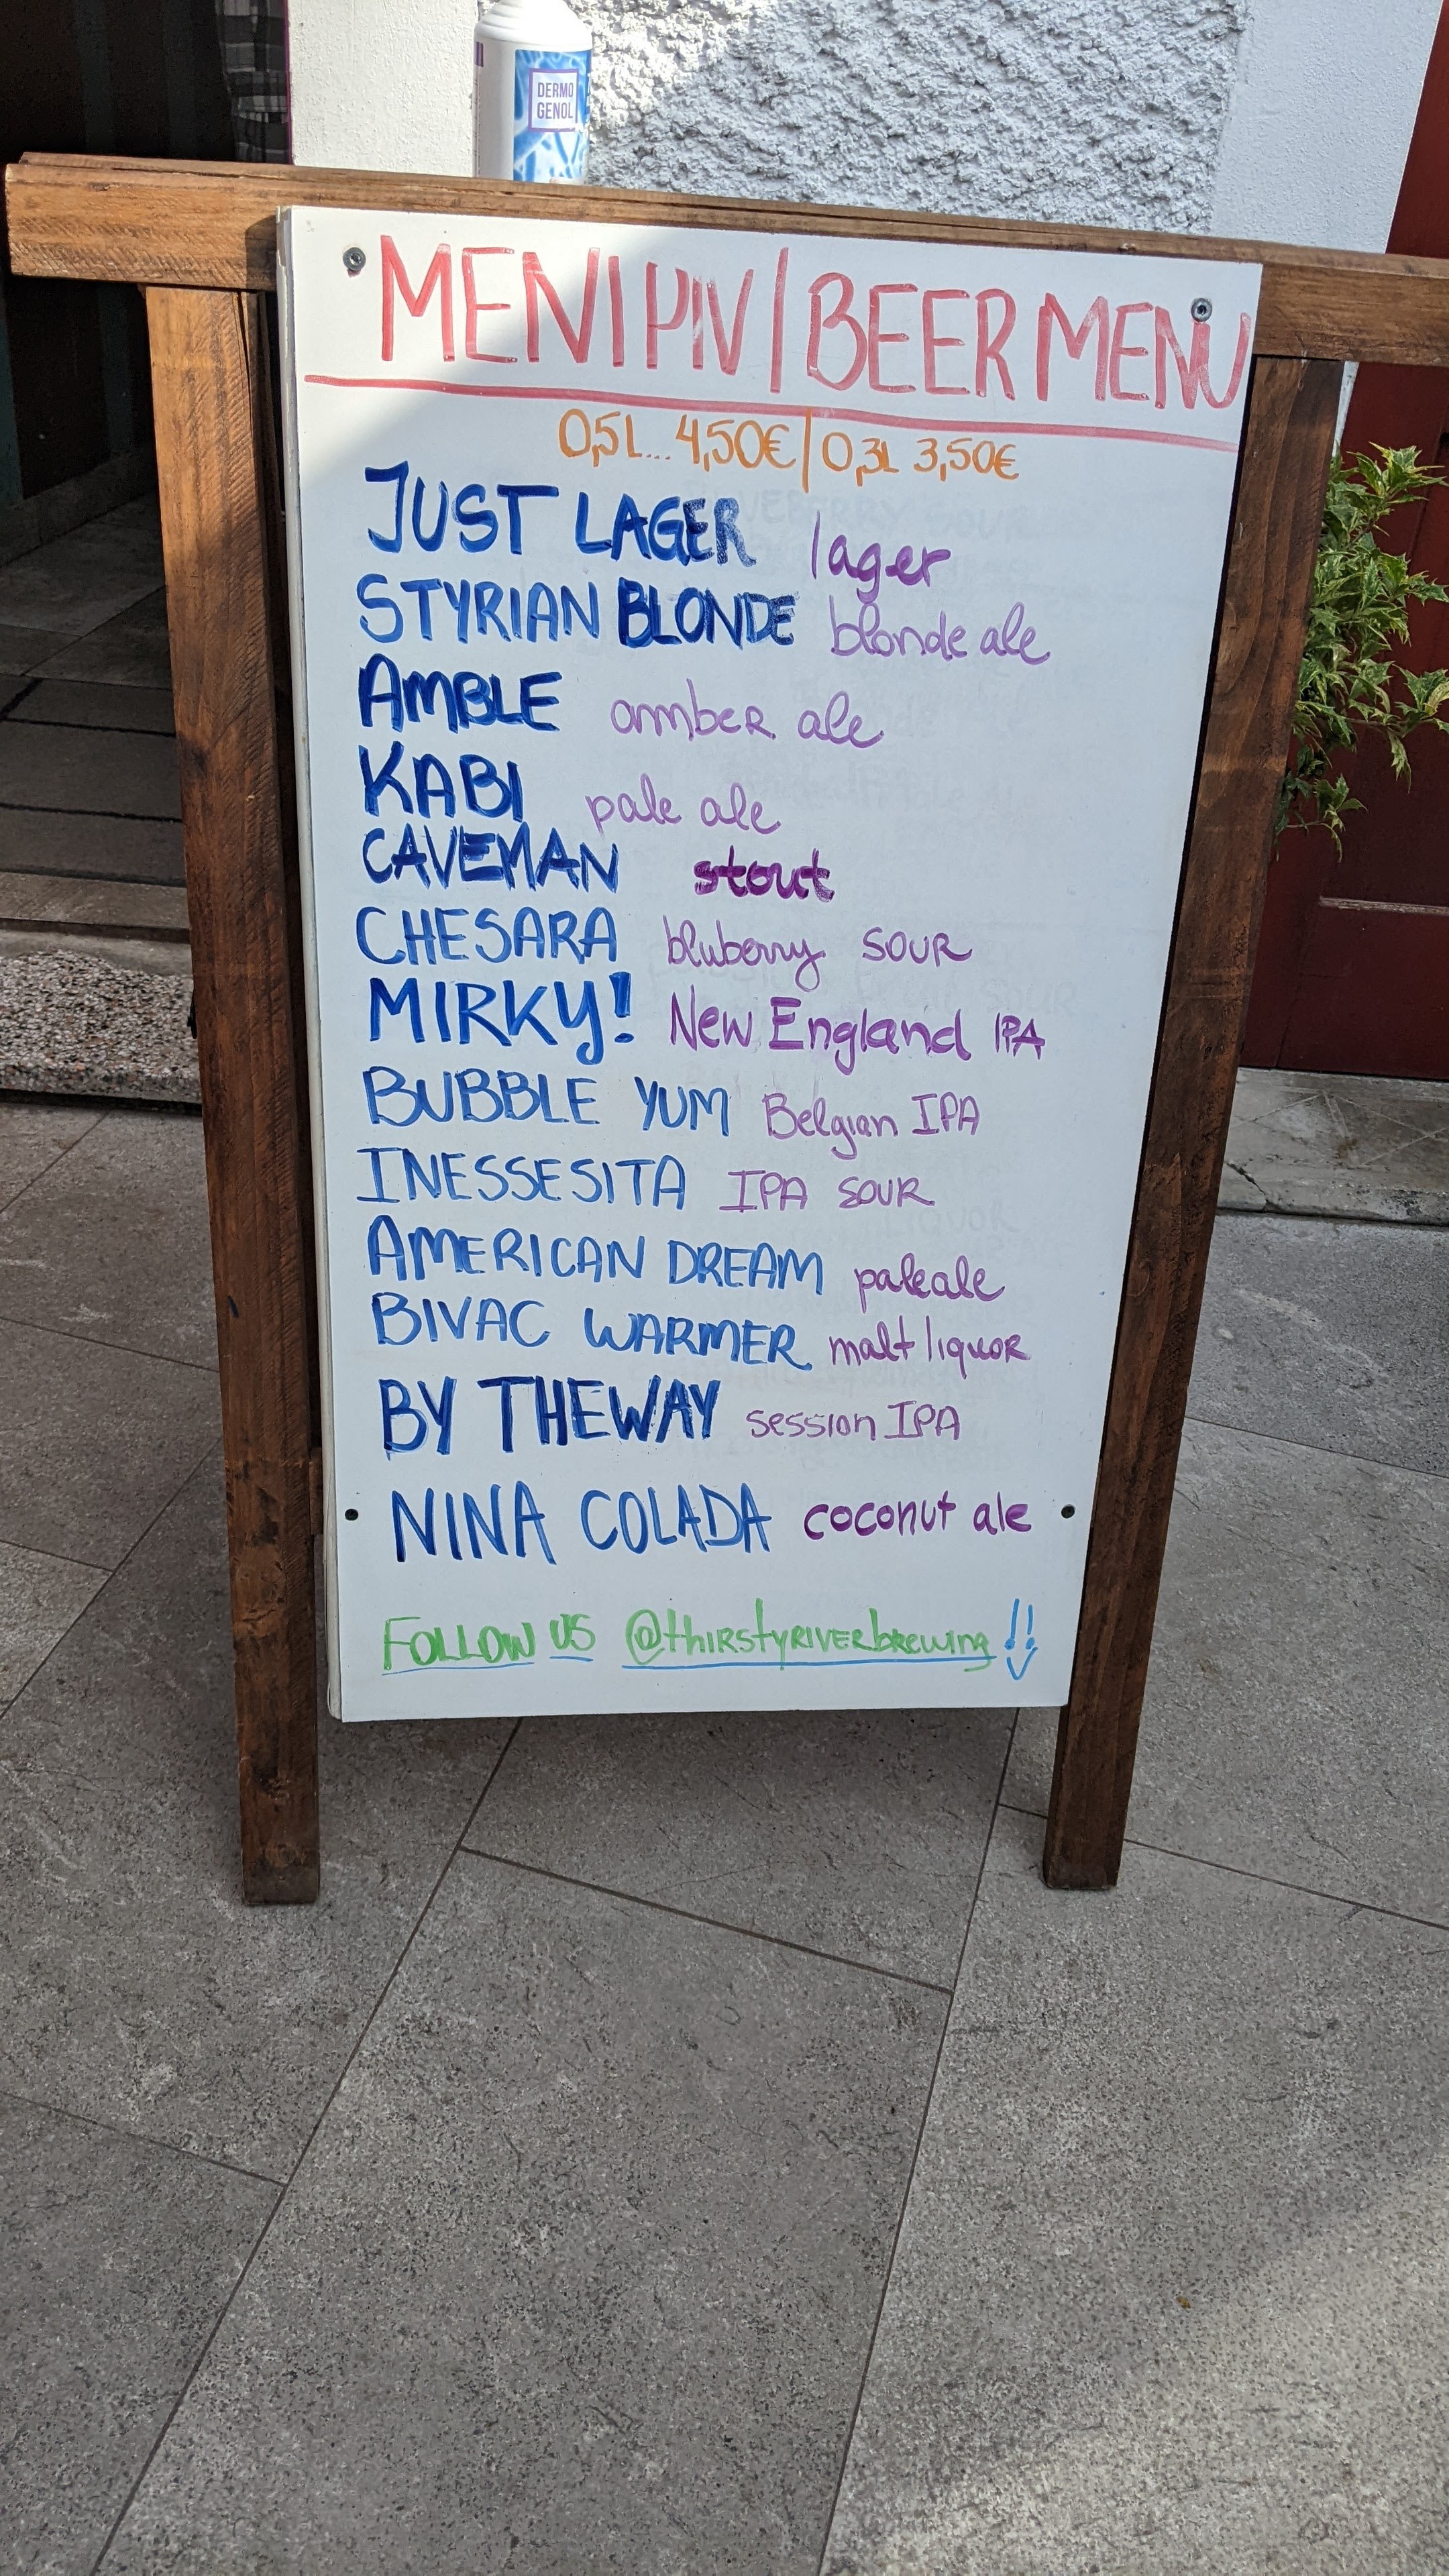 DERMO
GENOL
MENI PIV / BEER MENU
0,5L... 4,50€ | 0,3L 3,50€
JUST LAGER lager
STYRIAN BLONDE blonde ale
AMBLE amber ale
KABI pale ale
CAVEMAN stout
CHESARA bluberry SOUR
MIRKY! New England IPA
BUBBLE YUM Belgian IPA
INESSESITA IPA SOUR
AMERICAN DREAM pale ale
BIVAC WARMER malt liquor
BY THEWAY session IPA
NINA COLADA coconut ale
FOLLOW US @thirstyriverbrewing !!